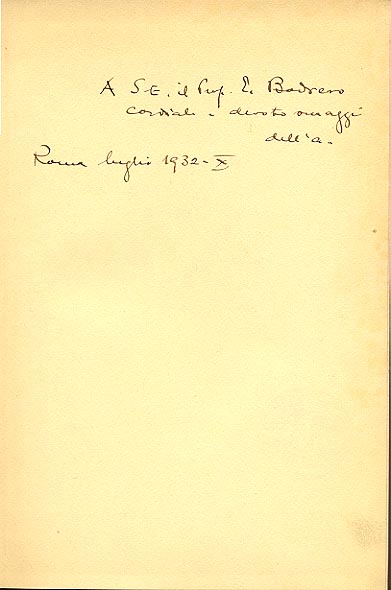 A S.E. il Prof. E. Bodrero
cordiali e devoti omaggi
dell'a.
Roma luglio 1932-X